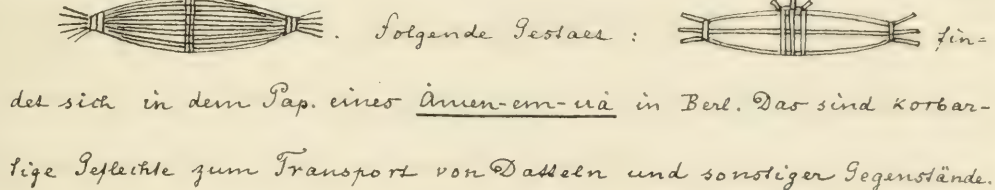 . Folgende Gestalt : fin=
det sich in dem Pap. eines Àmen-em-uà in Berl. Das sind korbar-
tige Geflechte zum Transport von Datteln und sonstiger Gegenstände.